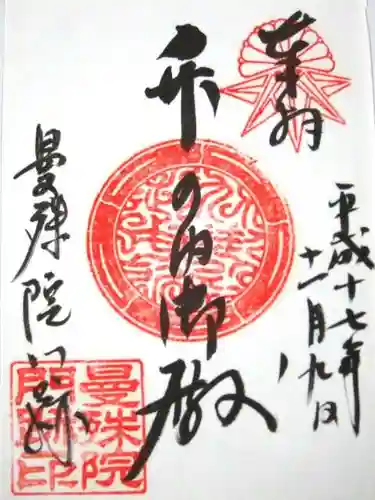 奉拝
平成十七年
十一月九日
竹の内御殿
曼殊院門跡
曼殊院
門跡印